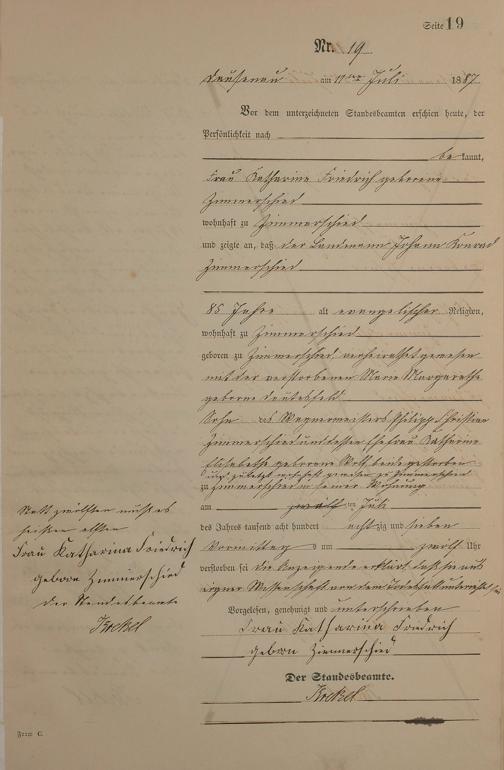 Seite 19
Nr. 19
Dausenau am 11ten Juli 1887
Vor dem unterzeichneten Standesbeamten erschien heute, der
Persönlichkeit nach
be kannt,
Frau Katharine Friedrich geborene
Zimmerschied
wohnhaft zu Zimmerschied
und zeigte an, daß der Landmann Johann Konrad
Zimmerschied
85 Jahre alt evangelischer Religion,
wohnhaft zu Zimmerschied
geboren zu Zimmerschied, verheirathet gewesen
mit der verstorbenen Marie Margarethe
geborene
Sohn des Wagnermeisters Philipp Christian
Zimmerschied und dessen Ehefrau Katharine
Elisabethe geborene beide gestorben
und zuletzt wohnhaft gewesen zu Zimmerschied
zu Zimmerschied in seiner Wohnung
am zwölften Juli
des Jahres tausend acht hundert achtzig und sieben
Vormittags um zwölf Uhr
verstorben sei die Anzeigende erklärt, daß sie aus
eigner Wissenschaft von dem Todesfall unterrichtet sei
Vorgelesen, genehmigt und unterschrieben
Frau Katharina Friedrich
geborn Zimmerschied
Der Standesbeamte.
Statt zwölften muß es
heißen elften
Frau Katharina Friedrich
geborn Zimmerschied
der Standesbeamte
Form C.